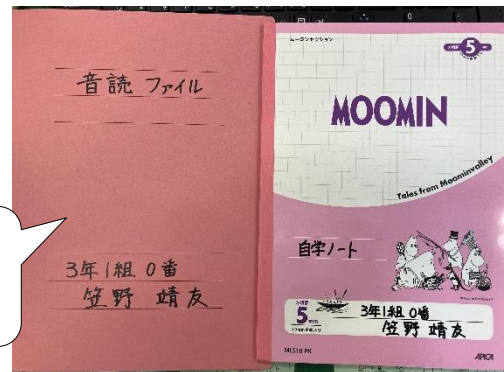 音読 ファイル
3年1組 0番
笠野 靖友
5
MOOMIN
Tales from Moominvalley
自学ノート
5mm
3年1組 0番
笠野 靖友
APICA